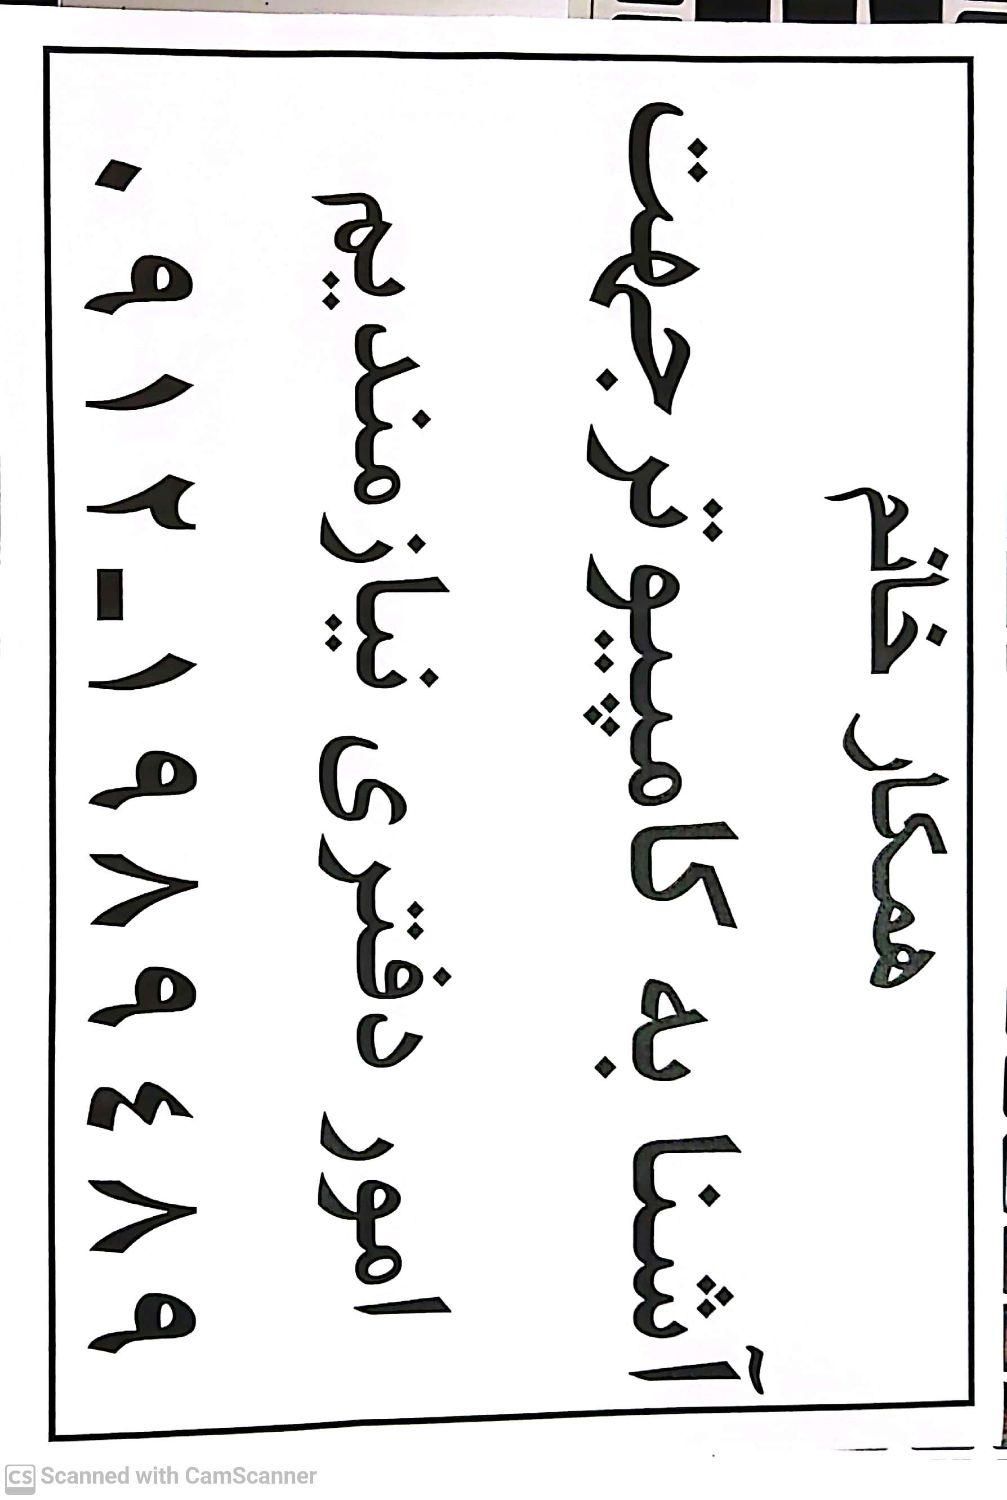 همکار خانم
آشنا به کامپیوتر جهت
امور دفتری نیازمندیم
۰۹۱۲-۱۹۸۹٤۸۹
CS Scanned with CamScanner